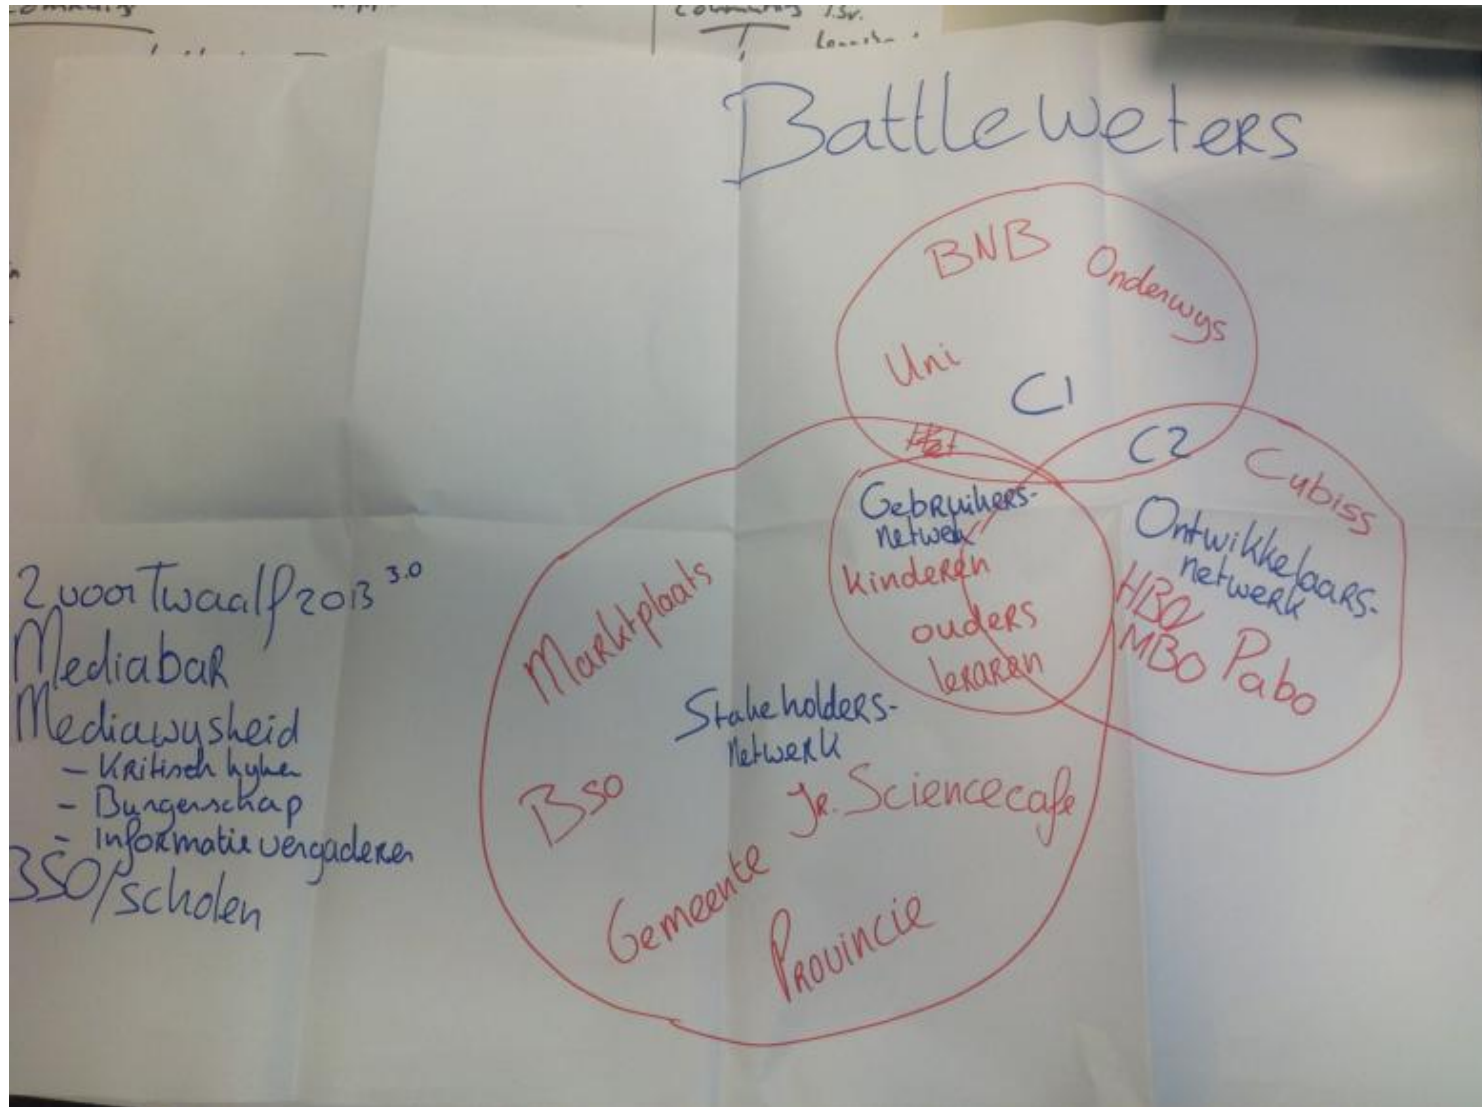 Community
Community
Battleweters
BNB
Onderwys
Uni
C1
C2
Cubiss
Gebruikers-
netwerk
kinderen
ouders
leraren
Ontwikkelaars-
netwerk
HBO
MBO Pabo
Marktplaats
Stakeholders-
netwerk
BSO
Jr. Sciencecafe
Gemeente
Provincie
2 voor Twaalf 2013 3.0
Mediabar
Mediawysheid
- Kritisch kyken
- Burgerschap
- Informatie vergaderen
BSO/scholen